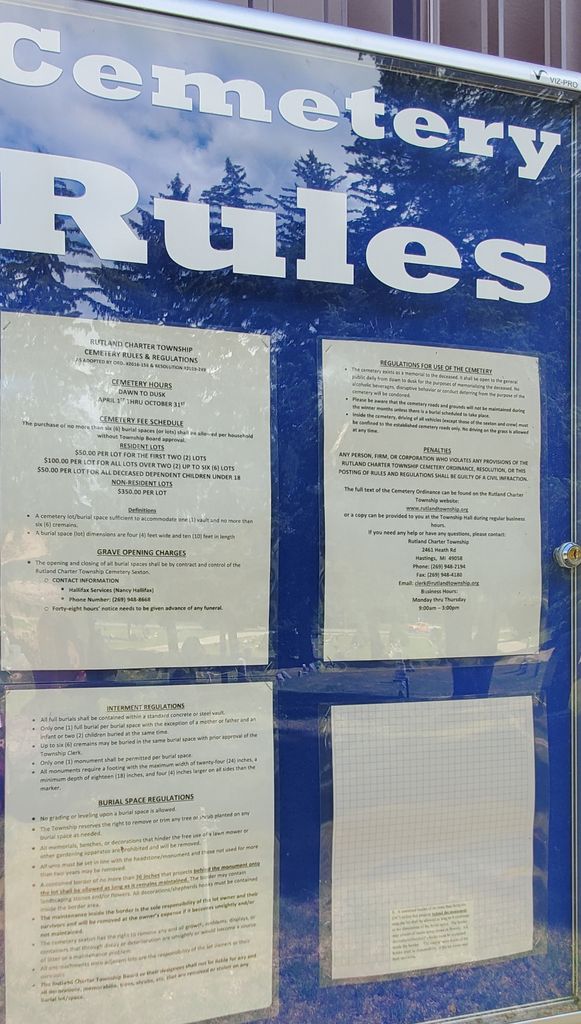 VIZ-PRO
Cemetery
Rules
RUTLAND CHARTER TOWNSHIP
CEMETERY RULES & REGULATIONS
AS ADOPTED BY ORD. #2016-156 & RESOLUTION #2019-249
CEMETERY HOURS
DAWN TO DUSK
APRIL 1ST THRU OCTOBER 31ST
CEMETERY FEE SCHEDULE
The purchase of no more than six (6) burial spaces (or lots) shall be allowed per household
without Township Board approval.
RESIDENT LOTS
$50.00 PER LOT FOR THE FIRST TWO (2) LOTS
$100.00 PER LOT FOR ALL LOTS OVER TWO (2) UP TO SIX (6) LOTS
$50.00 PER LOT FOR ALL DECEASED DEPENDENT CHILDREN UNDER 18
NON-RESIDENT LOTS
$350.00 PER LOT
Definitions
• A cemetery lot/burial space sufficient to accommodate one (1) vault and no more than
six (6) cremains.
• A burial space (lot) dimensions are four (4) feet wide and ten (10) feet in length
GRAVE OPENING CHARGES
• The opening and closing of all burial spaces shall be by contract and control of the
Rutland Charter Township Cemetery Sexton.
○ CONTACT INFORMATION
• Hallifax Services (Nancy Hallifax)
• Phone Number: (269) 948-8668
○ Forty-eight hours' notice needs to be given advance of any funeral.
REGULATIONS FOR USE OF THE CEMETERY
• The cemetery exists as a memorial to the deceased. It shall be open to the general
public daily from dawn to dusk for the purposes of memorializing the deceased. No
alcoholic beverages, disruptive behavior or conduct deterring from the purpose of the
cemetery will be condoned.
• Please be aware that the cemetery roads and grounds will not be maintained during
the winter months unless there is a burial scheduled to take place.
• Inside the cemetery, driving of all vehicles (except those of the sexton and crew) must
be confined to the established cemetery roads only. No driving on the grass is allowed
at any time.
PENALTIES
ANY PERSON, FIRM, OR CORPORATION WHO VIOLATES ANY PROVISIONS OF THE
RUTLAND CHARTER TOWNSHIP CEMETERY ORDINANCE, RESOLUTION, OR THIS
POSTING OF RULES AND REGULATIONS SHALL BE GUILTY OF A CIVIL INFRACTION.
The full text of the Cemetery Ordinance can be found on the Rutland Charter
Township website:
www.rutlandtownship.org
or a copy can be provided to you at the Township Hall during regular business
hours.
If you need any help or have any questions, please contact:
Rutland Charter Township
2461 Heath Rd
Hastings, MI 49058
Phone: (269) 948-2194
Fax: (269) 948-4180
Email: clerk@rutlandtownship.org
Business Hours:
Monday thru Thursday
9:00am – 3:00pm
INTERMENT REGULATIONS
• All full burials shall be contained within a standard concrete or steel vault.
• Only one (1) full burial per burial space with the exception of a mother or father and an
infant or two (2) children buried at the same time.
• Up to six (6) cremains may be buried in the same burial space with prior approval of the
Township Clerk.
• Only one (1) monument shall be permitted per burial space.
• All monuments require a footing with the maximum width of twenty-four (24) inches, a
minimum depth of eighteen (18) inches, and four (4) inches larger on all sides than the
marker.
BURIAL SPACE REGULATIONS
• No grading or leveling upon a burial space is allowed.
• The Township reserves the right to remove or trim any tree or shrub planted on any
burial space as needed.
• All memorials, benches, or decorations that hinder the free use of a lawn mower or
other gardening apparatus are prohibited and will be removed.
• All urns must be set in line with the headstone/monument and those not used for more
than two years may be removed.
• A contained border of no more than 36 inches that projects behind the monument onto
the lot shall be allowed as long as it remains maintained. The border may contain
landscaping stones and/or flowers. All decorations/shepherds hooks must be contained
inside the border area.
• The maintenance inside the border is the sole responsibility of the lot owner and their
survivors and will be removed at the owner's expense if it becomes unsightly and/or
not maintained.
• The cemetery sexton has the right to remove any and all growth, emblems, displays, or
containers that through decay or deterioration are unsightly or would become a source
of litter or a maintenance problem.
• All encroachments more adjacent lots are the responsibility of the lot owners or their
survivors.
• The Rutland Charter Township Board or their designees shall not be liable for any and
all decorations, memorabilia, trees, shrubs, etc. that are removed or stolen on any
burial lot/space.